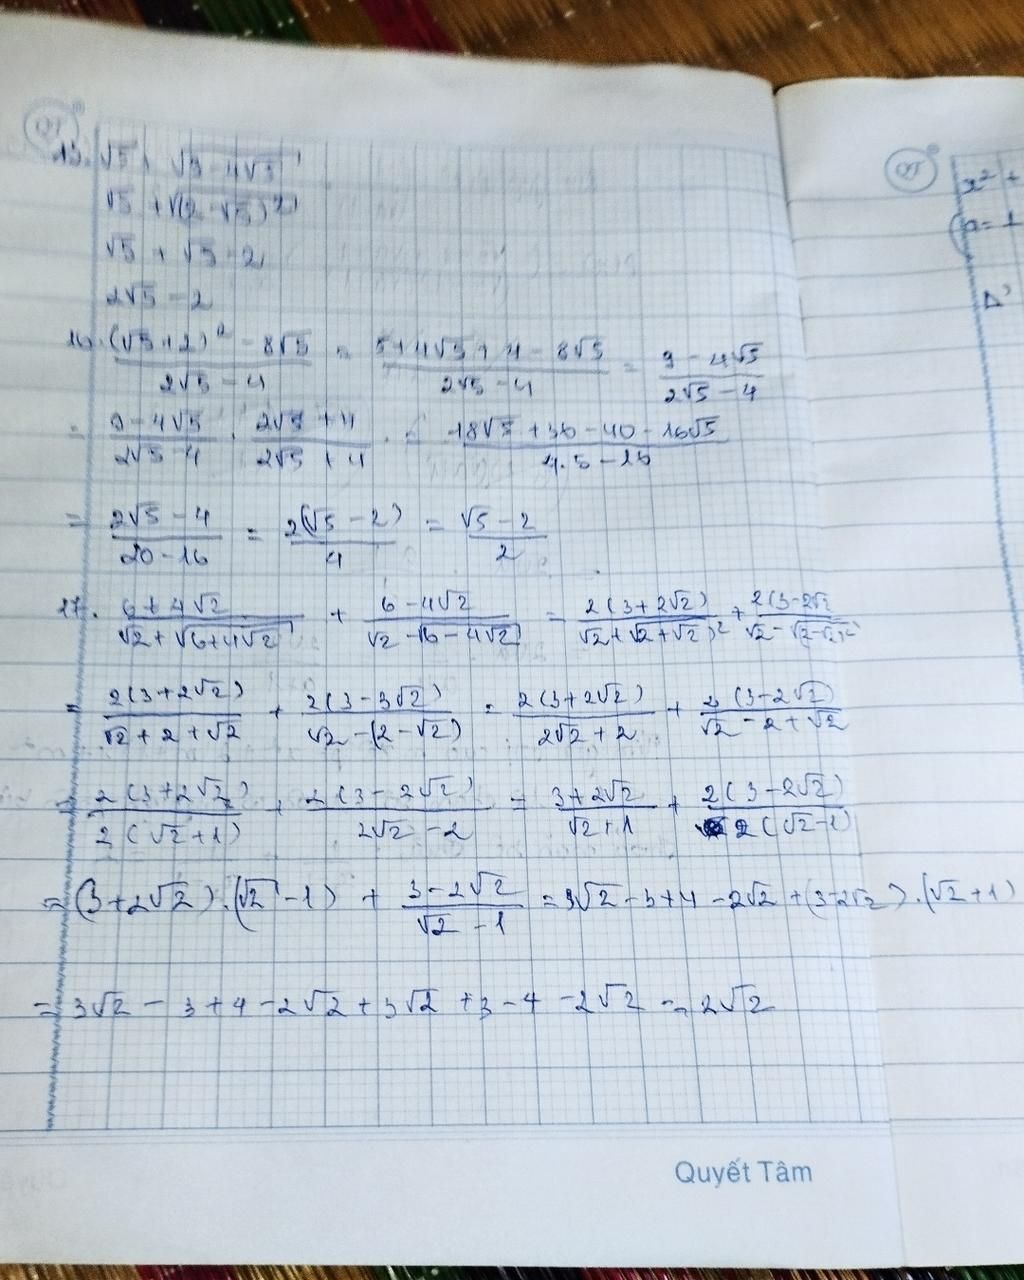 15. √5 + √(9-4√5)
√5 + √(2-√5)²
√5 + √5 - 2
2√5 - 2
16. ((√5+2)² - 8√5)/(2√5-4) = (5+4√5+4-8√5)/(2√5-4) = (9-4√5)/(2√5-4)
= (9-4√5)/(2√5-4) . (2√5+4)/(2√5+4) = (18√5+36-40-16√5)/(4.5-16)
= (2√5-4)/(20-16) = 2(√5-2)/4 = (√5-2)/2
17. (6+4√2)/(√2+√(6+4√2)) + (6-4√2)/(√2-√(6-4√2)) = 2(3+2√2)/(√2+√(2+√2)²) + 2(3-2√2)/(√2-√(2-√2)²)
= 2(3+2√2)/(√2+2+√2) + 2(3-3√2)/(√2-(2-√2)) = 2(3+2√2)/(2√2+2) + 2(3-2√2)/(√2-2+√2)
= 2(3+2√2)/(2(√2+1)) + 2(3-2√2)/(2√2-2) = (3+2√2)/(√2+1) + 2(3-2√2)/(2(√2-1))
= (3+2√2).(√2-1) + (3-2√2)/(√2-1) = 3√2-3+4-2√2+(3-2√2).(√2+1)
= 3√2-3+4-2√2+3√2+3-4-2√2 = 2√2
Quyết Tâm
x² +
(a=1
Δ'